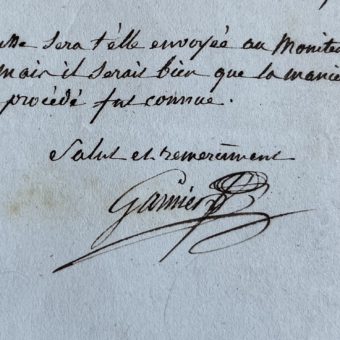 sera t'elle envoyée au Monite
mais il serais bien que la maniè
procédé fut connue.
Salut et remerciment
Garnier